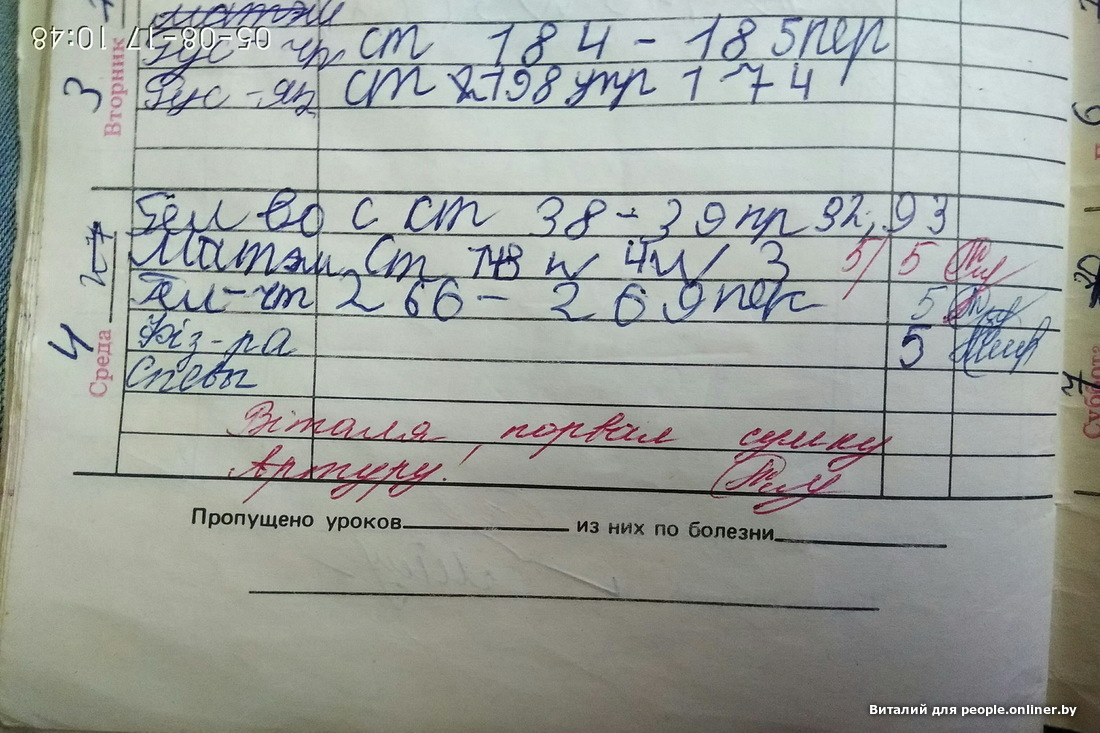 матэм
05-08-17 10:48
3 Вторник
Рус-чт ст 184-185 пер
Рус-яз ст 198 упр 174
4 Среда
Бел ст 38-39 пр 92, 93
Матэм Ст 148 н 4 и 3 5/5
Бел-чт 266-269 пер 5
Фіз-ра 5
Спевы
Віталя порвал сумку
Артуру!
Пропущено уроков из них по болезни
7 Суббота
Виталий для people.onliner.by